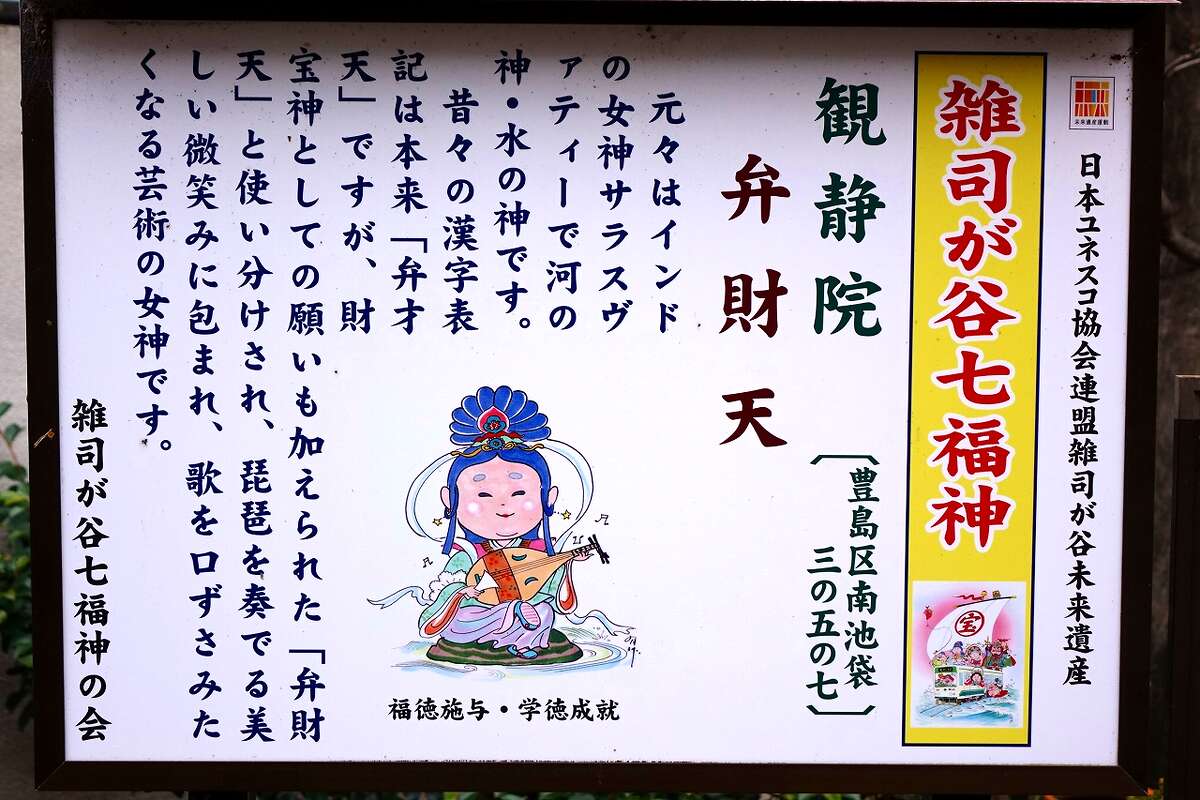 未来遺産運動
日本ユネスコ協会連盟雑司が谷未来遺産
雑司が谷七福神
宝
観静院
〔豊島区南池袋
三の五の七〕
弁財天
元々はインド
の女神サラスヴ
ァティーで河の
神・水の神です。
昔々の漢字表
記は本来「弁才
天」ですが、財
宝神としての願いも加えられた「弁財
天」と使い分けされ、琵琶を奏でる美
しい微笑みに包まれ、歌を口ずさみた
くなる芸術の女神です。
福徳施与・学徳成就
雑司が谷七福神の会